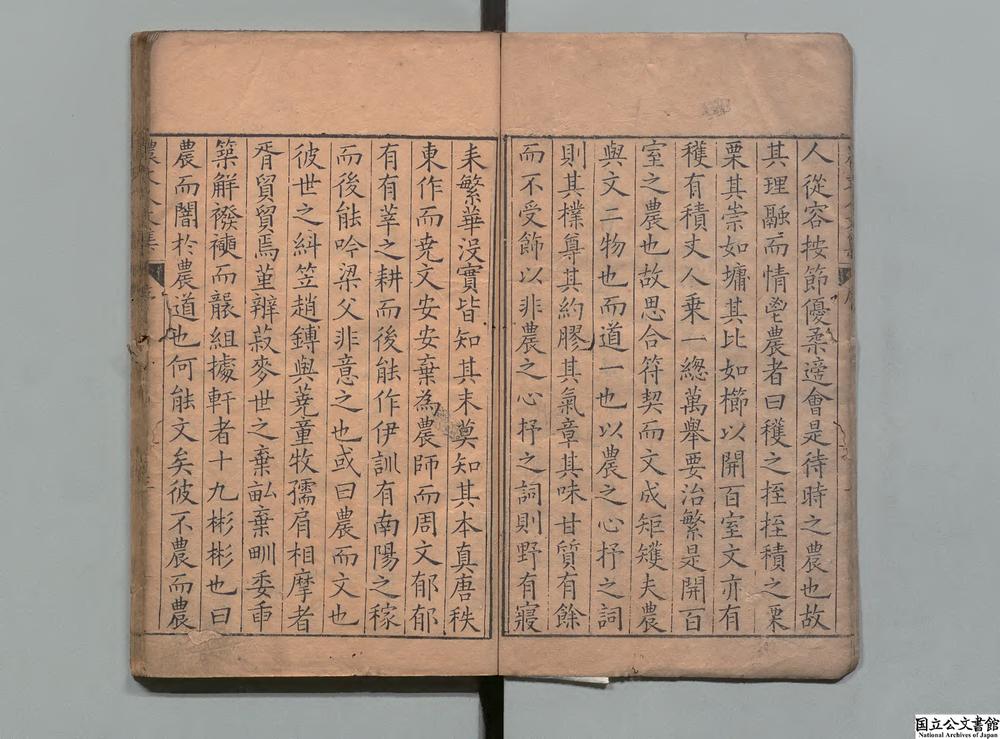 人從容按節優柔適會是待時之農也故
其理融而情鬯農者曰穫之挃挃積之栗
栗其崇如墉其比如櫛以開百室文亦有
穫有積丈人乗一緫萬舉要治繁是開百
室之農也故思合符契而文成矩矱夫農
與文二物也而道一也以農之心抒之詞
則其樸尊其約膠其氣章其味甘質有餘
而不受飾以非農之心抒之詞則野有寢
耒繁華没實皆知其末莫知其本真唐秩
東作而尭文安安棄為農師而周文郁郁
有有莘之耕而後能作伊訓有南陽之稼
而後能吟梁父非意之也或曰農而文也
彼世之糾笠趙鎛與蕘童牧孺肩相摩者
胥貿貿焉菫辨菽麥世之棄畆棄甽委
築觧襏襫而組據軒者十九彬彬也曰
農而闇於農道也何能文矣彼不農而農
農丈人文集
国立公文書館
National Archives of Japan